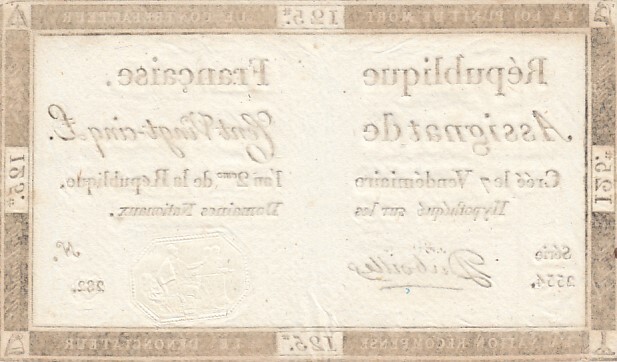 LA LOI PUNIT DE MORT 125.# LE CONTREFACTEUR
République Française.
Assignat de Cent Vingt-cinq £.
125.# 125.#
Créé le 7 Vendémiaire l'an 2eme de la République.
Hypothéqué sur les Domaines Nationaux.
Série N.
2554. 282.
LA NATION RECOMPENSE 125.# LE DENONCIATEUR